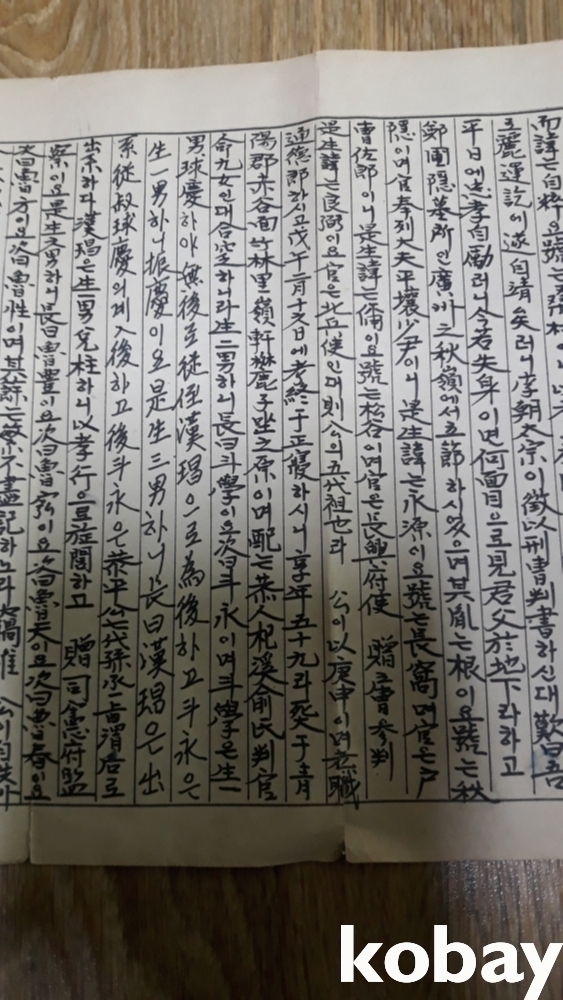 而諱는自粹요號는
麗運訖에遂自靖矣러니李朝太宗이徵以刑曹判書하신대歎曰吾
平日에忠孝自勵러니今若失身이면何面目으로見君父於地下라하고
鄭圃隱墓所인廣州之秋嶺에서立節하시었으며其胤는根이요號는秋
隱이며官奉列大夫平壤少尹이니是生諱는永源이요號는長窩며官은戶
曹佐郎이니是生諱는備이요號는松谷이며官은長興府使 贈工曹參判
是生諱는良弼이요官은北兵使인대則公의五代祖也라 公이以庚申이며
通德郎라시고戊午二月十六日에考終于正寢하시니享年五十九라葬于
陽郡赤谷面竹林里嶺軒 麓子坐之原이며配는恭人杞溪俞氏判官
命九女인대合窆하니라生二男하니長曰斗學이요次曰斗永이며斗學은生一
男球慶하야無後로從侄漢瑒으로為後하고斗永은
生一男하니振慶이요是生三男하니長曰漢瑒은出
系從叔球慶의계入後하고後斗永은恭平公七代孫 渭君로
出系하다漢瑒은生一男兌柱하니以孝行으로旌閭하고 贈司憲府監
察이요是生 男하니長曰魯豐이요次曰魯 이요次曰魯天이요次曰魯春이요
次曰魯方이요次曰魯性이며其餘는繁不盡記하노라